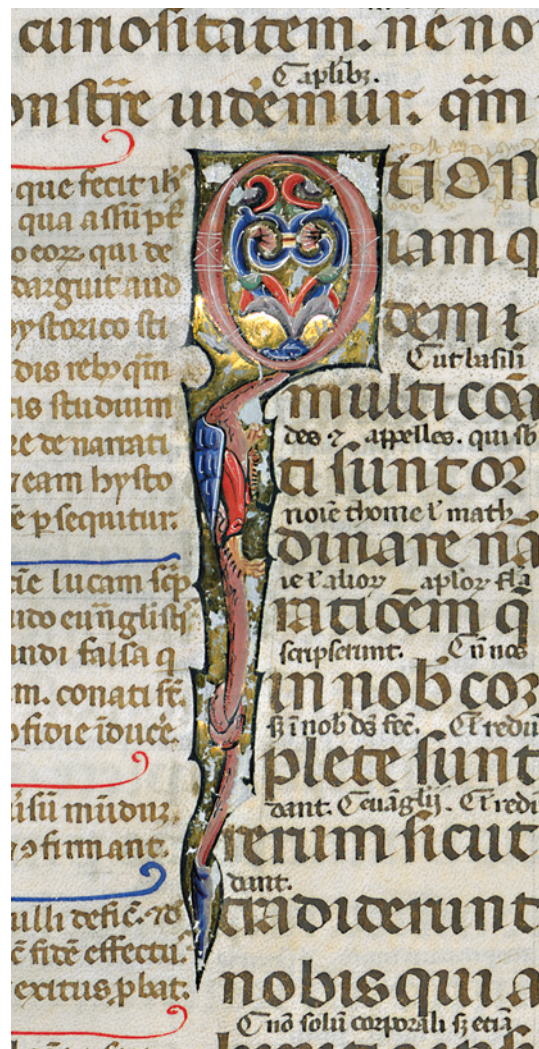 curiositatem. ne no
aplibꝫ.
onstr̄e uidemur. qm̄
que fecit ih̄s
qua assūp̄
o coꝝ. qui de
darguit aud
hystorico sti
dis rebꝰ qm̄
is studium
re de narrati
eam hysto
ē ꝑsequitur.
cīe lucam sc̄p
udo euūglistꝭ
andi falsa q
m. conati st̄.
fidie īducē.
isū mūdūꝫ.
ꝯfirmant.
ulli defic̄.
ē fitē effectū.
exitus ꝓbat.
Q
tion
iam q
dem i
Cut basili
multi cōa
des ⁊ appelles. qui sb
ti sunt or
noīe thome ł math
dinare nā
ie ł alioꝝ aploꝝ fla
ratiōem q̄
scripserunt. C ū nos
in nob coꝫ
sꝫ ī nob ds̄ fec̄. C redū
plete sunt
dant. C euāglij. C redi
rerum sicut
dant.
tradiderunt
nobis qui a
C nō solū corporali sꝫ etiā